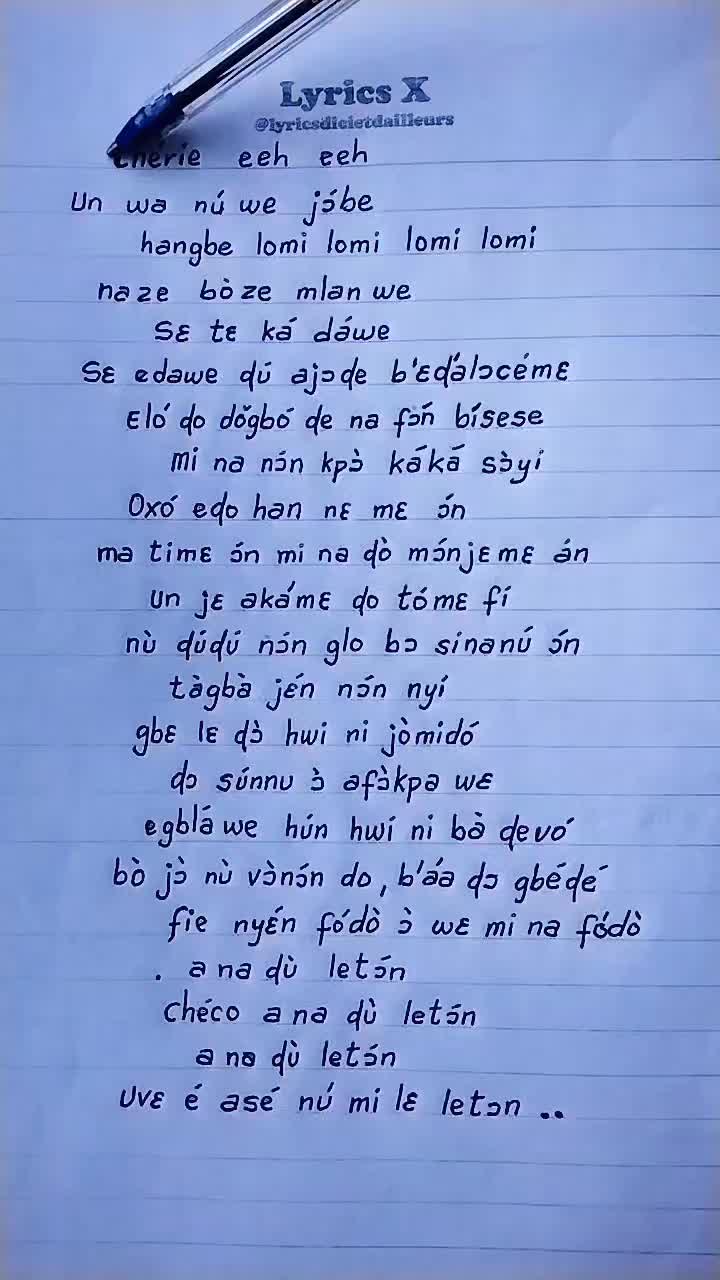 Lyrics X
@lyricsdicietdailleurs
chérie eeh eeh
Un wa nú we jɔ́be
hangbe lomi lomi lomi lomi
naze bòze mlan we
Sɛ tɛ ká dáwe
Sɛ edawe ɖú ajɔɖe b'ɛɖálɔcémɛ
ɛló ɖo ɖǒgbó ɖe na fɔ́ń bísese
mi na nɔ́n kpɔ̀ káká sɔ̀yi
Oxó edo han nɛ mɛ ɔ́n
ma timɛ ɔ́n mi na ɖò mɔ́njɛmɛ án
un jɛ akámɛ ɖo tómɛ fí
nù ɖúɖú nɔ́n glo bɔ sinanú ɔ́n
tàgbà jɛ́n nɔ́n nyí
gbɛ lɛ ɖɔ̀ hwi ni jòmidó
ɖɔ súnnu ɔ̀ afɔ̀kpa wɛ
egblá we hún hwí ni bà ɖevó
bò jɔ̀ nù vɔ̀nɔ́n do, b'áa ɖɔ gbéɖé
fie nyɛ́n fóɖò ɔ̀ wɛ mi na fóɖò
. a na ɖù letɔ́n
chéco a na ɖù letɔ́n
a na ɖù letɔ́n
Uvɛ é asé nú mi lɛ letɔn ..